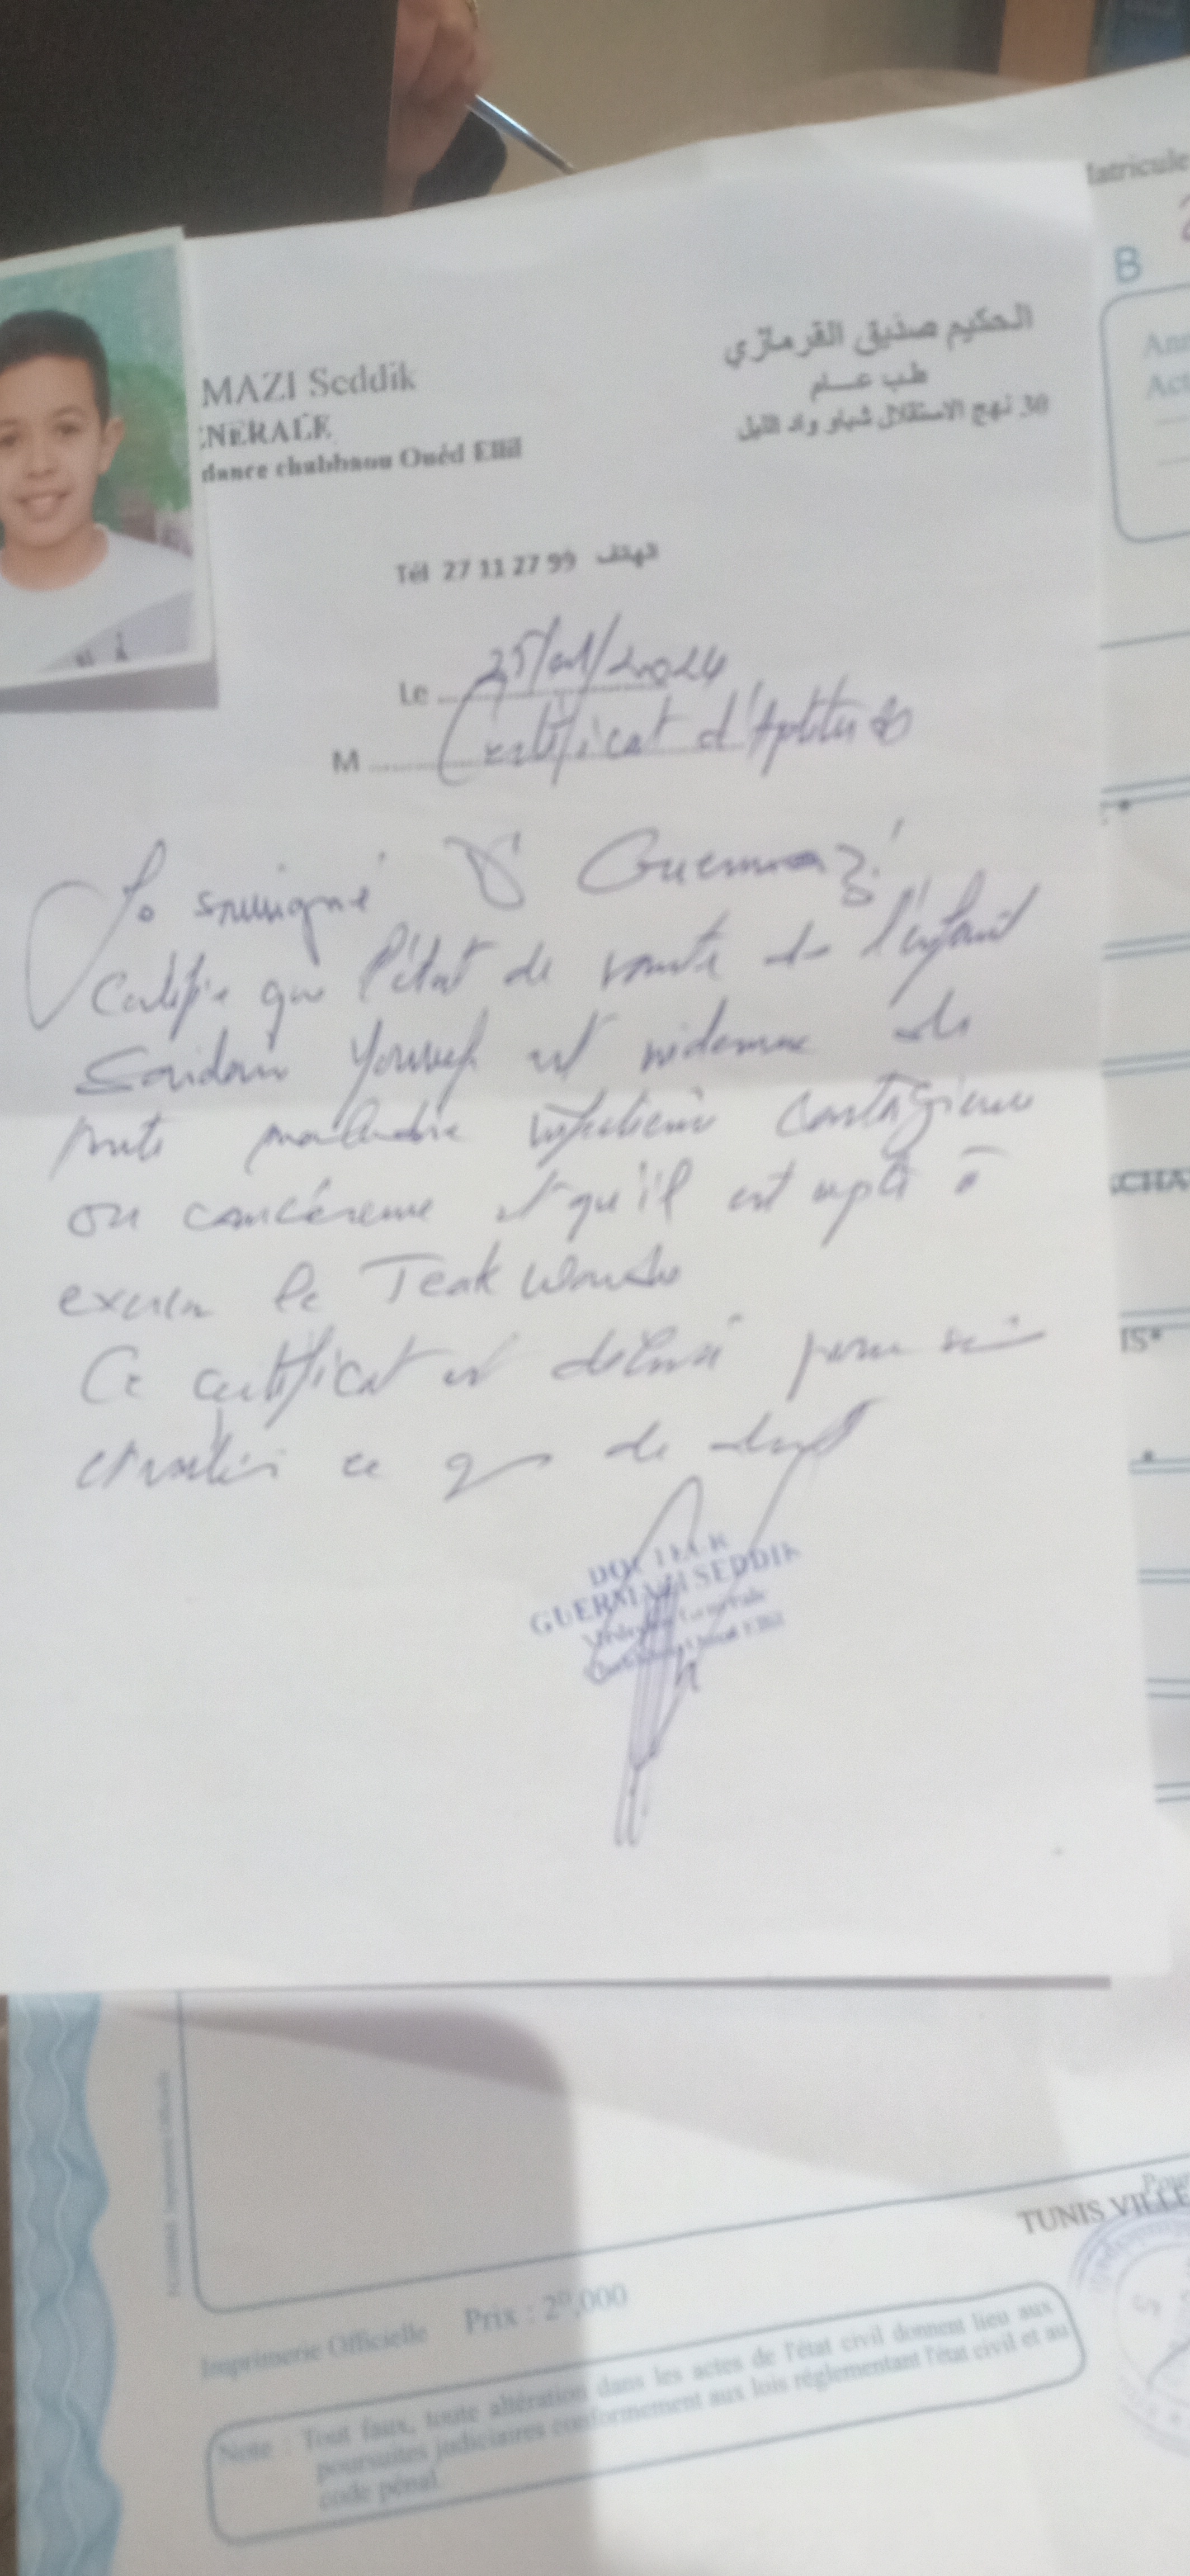 MAZI Seddik
NERALE
dance chabbaou Ouéd Ellil
الحكيم صديق القرمازي
طب عام
30 نهج الاستقلال شباو واد الليل
Tél 27 11 27 99 الهاتف
Le 25/01/2024
M Certificat d'Aptitude
Je soussigné Dr Guermazi
Certifie que l'état de santé de l'enfant
Youssef est indemne de
toute maladie infectieuse contagieuse
ou cancéreuse et qu'il est apte à
exercer le
Ce certificat est délivré pour
ce que de droit
DOCTEUR
GUERMAZI SEDDIK
Médecine Générale
Oued Ellil
latricule
B
Ann
Act
CHA
IS*
Pour
TUNIS VILLE
Imprimerie Officielle Prix : 2D,000
Note : Tout faux, toute altération dans les actes de l'état civil donnent lieu aux
poursuites judiciaires conformement aux lois réglementant l'état civil et au
code pénal.